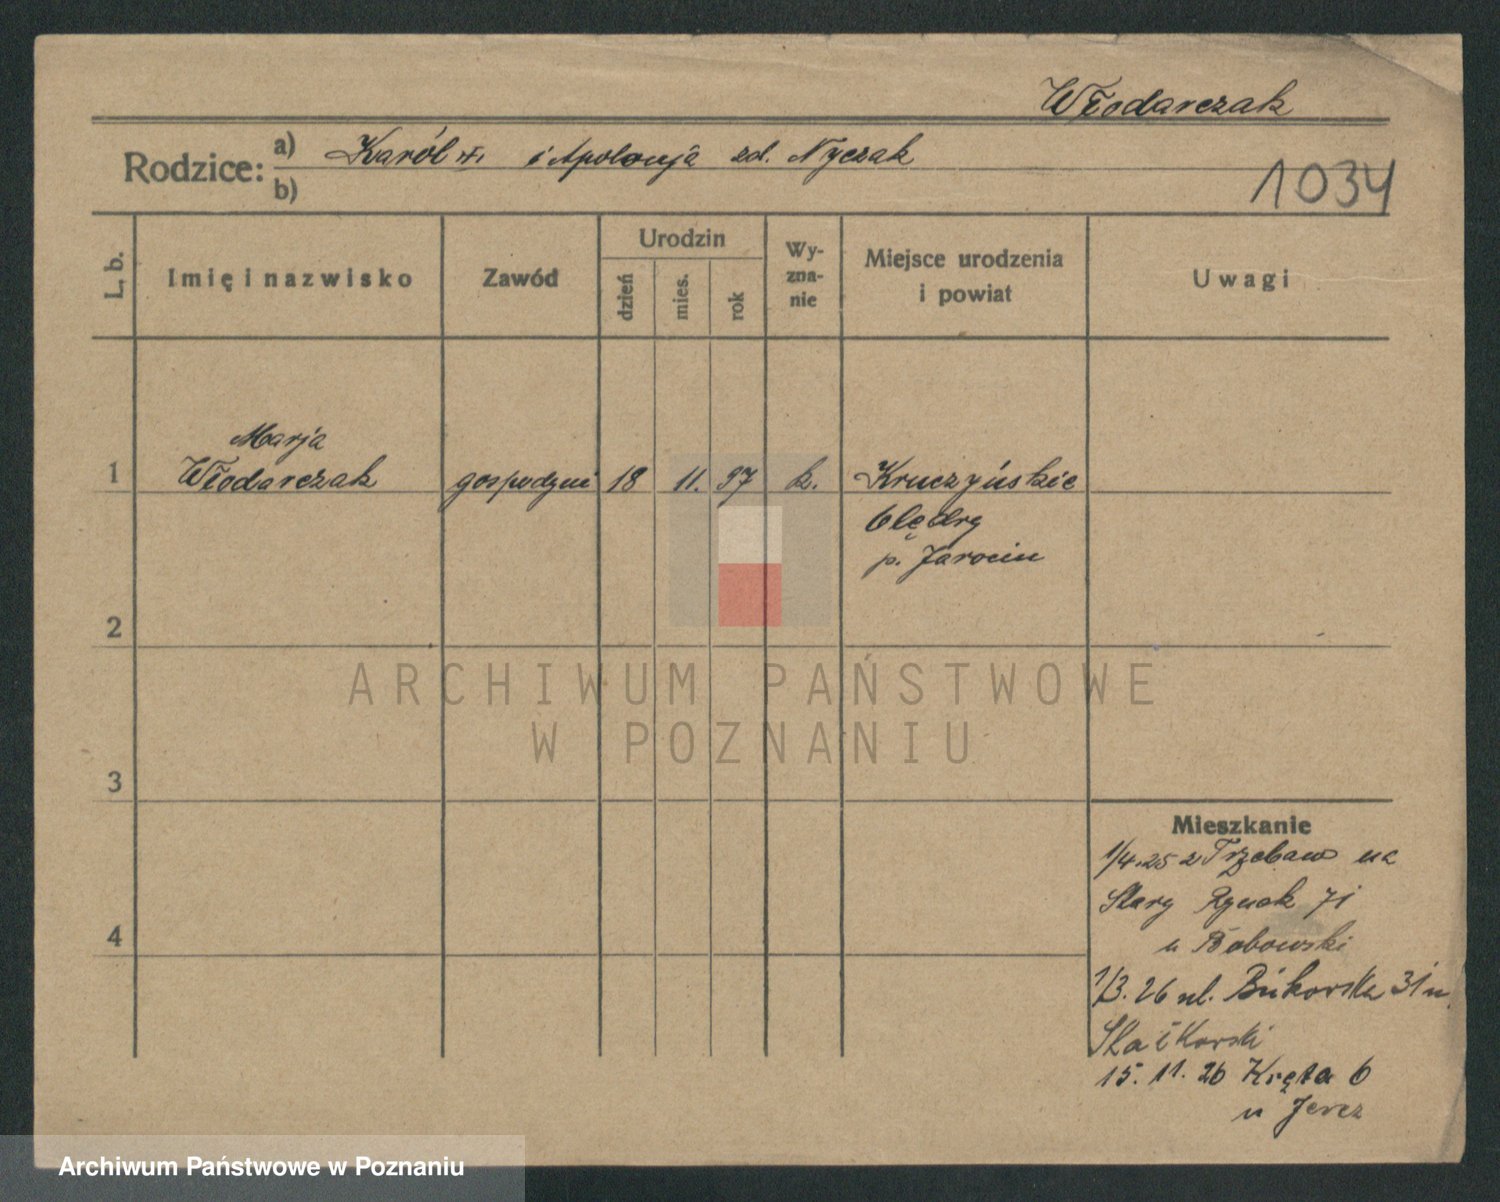 Włodarczak
Rodzice: a) Karól i Apolonja zd. Nyczak
b)
1034
L. b.
Imię i nazwisko
Zawód
Urodzin
dzień
mies.
rok
Wy-
zna-
nie
Miejsce urodzenia
i powiat
Uwagi
Marja
1 Włodarczak gospodyni 18 11. 97 k. Kruczyńskie
Olędry
p. Jarocin
2
ARCHIWUM PAŃSTWOWE
W POZNANIU
3
Mieszkanie
1/4.25 z Trzebaw na
Stary Rynek 71
4
u Bobowski
1/3. 26 ul. Bukowska 31 u
15. 11. 26 Kręta 6
u Jerez
Archiwum Państwowe w Poznaniu